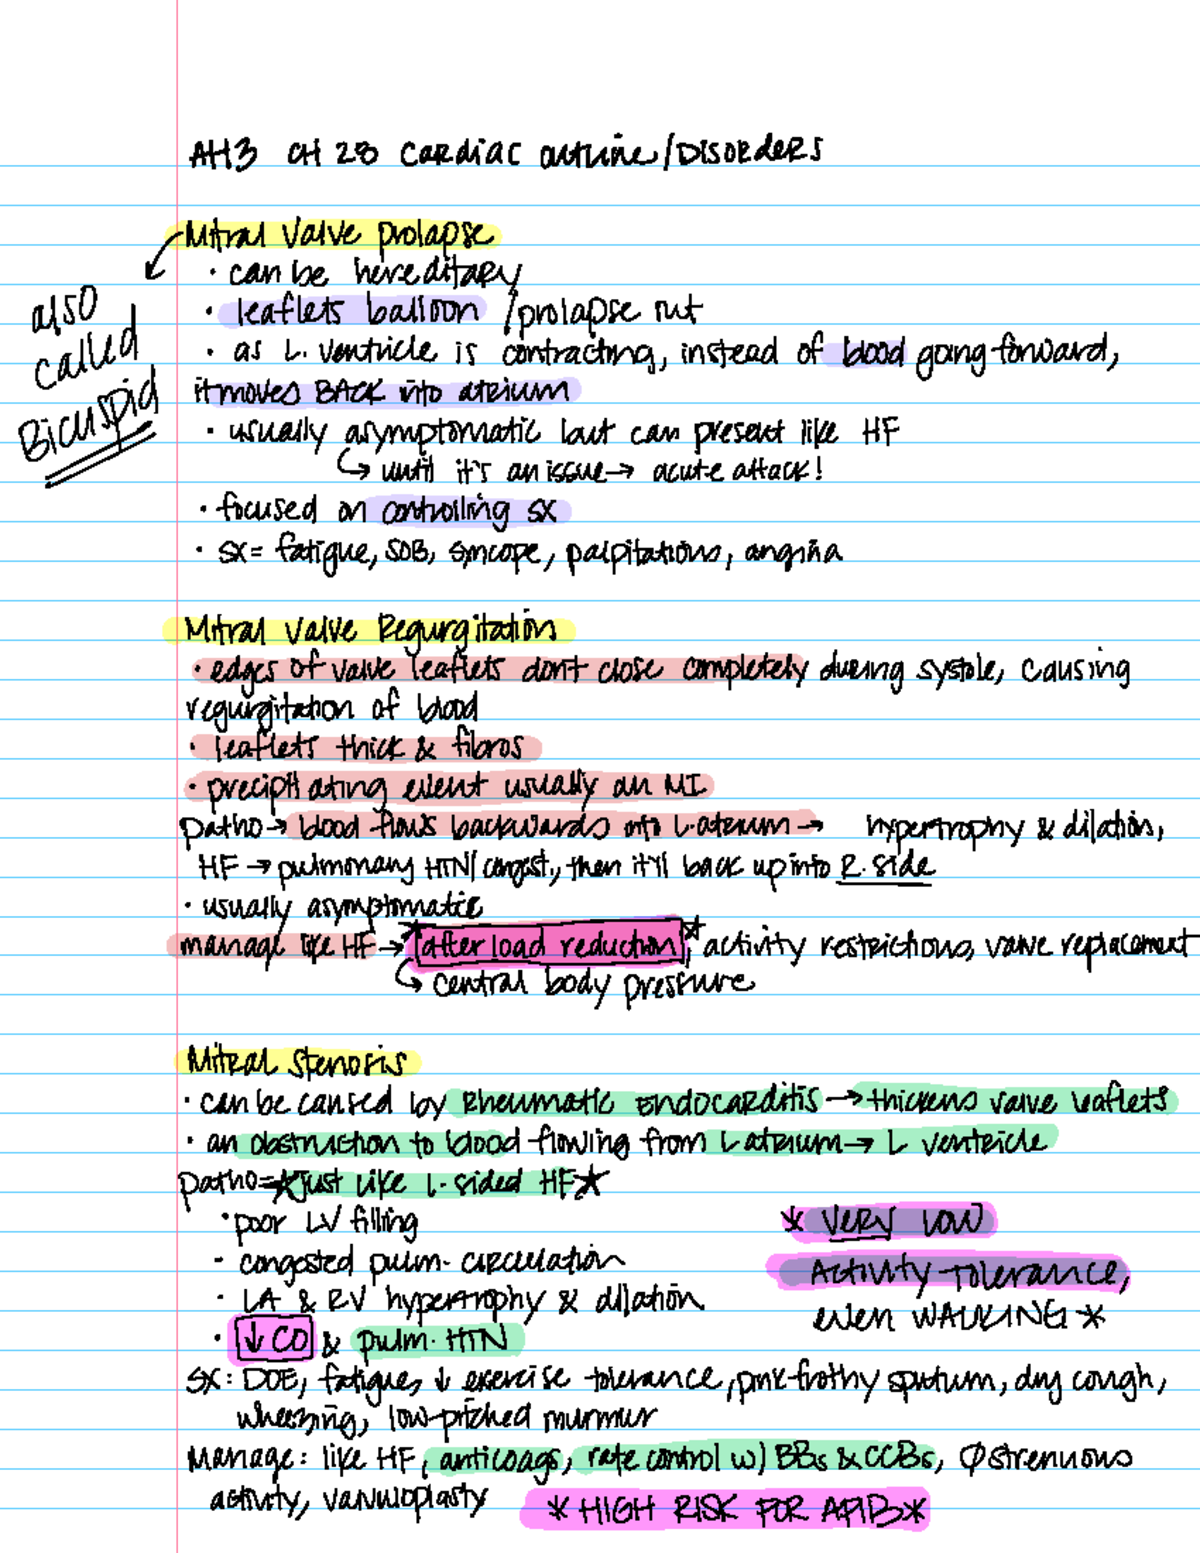 AH3 CH 28 Cardiac outline/DISORders
Mitral valve prolapse
also
called
Bicuspid
· can be hereditary
· leaflets balloon /prolapse out
· as L. ventricle is contracting, instead of blood going forward,
it moves BACK into atrium
· usually asymptomatic but can present like HF
↳ until it's an issue → acute attack!
· focused on controlling sx
· sx= fatigue, SOB, syncope, palpitations, angina
Mitral valve Regurgitation
· edges of valve leaflets don't close completely during systole, causing
regurgitation of blood
· leaflets thick & fibros
· precipitating event usually an MI
patho → blood flows backwards into L. atrium → hypertrophy & dilation,
HF → pulmonary HTN/congest., then it'll back up into R. side
· usually asymptomatic
manage like HF → *afterload reduction*, activity restrictions, valve replacement
↳ central body pressure
Mitral Stenosis
· can be caused by Rheumatic ENDOCARDITIS → thickens valve leaflets
· an obstruction to blood flowing from L atrium → L ventricle
patho= ★just like L. sided HF★
· poor LV filling
· congested pulm. circulation
· LA & RV hypertrophy & dilation
· ↓ CO & pulm. HTN
* VERY LOW
Activity Tolerance,
even WALKING *
SX: DOE, fatigue, ↓ exercise tolerance, pink frothy sputum, dry cough,
wheezing, low-pitched murmur
Manage: like HF, anticoags, rate control w/ BBs & CCBs, Ø strenuous
activity, valvuloplasty
* HIGH RISK FOR AFIB *